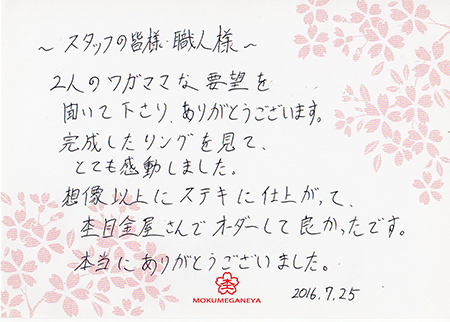 ～スタッフの皆様・職人様～
2人のワガママな要望を
聞いて下さり、ありがとうございます。
完成したリングを見て、
とても感動しました。
想像以上にステキに仕上がって、
杢目金屋さんでオーダーして良かったです。
本当にありがとうございました。
MOKUMEGANEYA
2016.7.25